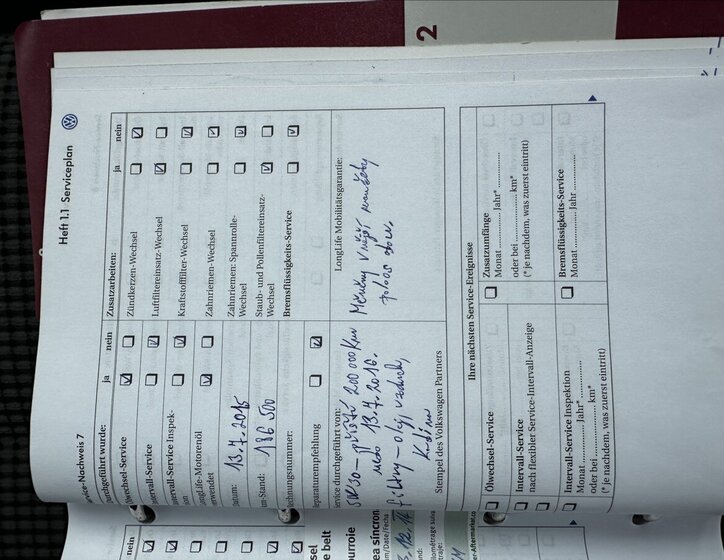 Heft 1.1 Serviceplan
2
ice-Nachweis 7
Durchgeführt wurde:
ja
nein
Ölwechsel-Service
Intervall-Service
Intervall-Service Inspek-
ion
LongLife-Motorenöl
verwendet
Datum: 13.7.2015
m-Stand: 186 500
echnungsnummer:
Reparaturempfehlung
Service durchgeführt von:
5W30 – příští 200 000 Km
nebo 13.7.2016.
filtry – olej, vzduch,
Stempel des Volkswagen Partners
Zusatzarbeiten:
ja
nein
Zündkerzen-Wechsel
Luftfiltereinsatz-Wechsel
Kraftstofffilter-Wechsel
Zahnriemen-Wechsel
Zahnriemen: Spannrolle-
Wechsel
Staub- und Pollenfiltereinsatz-
Wechsel
Bremsflüssigkeits-Service
LongLife Mobilitätsgarantie:
Ihre nächsten Service-Ereignisse
Ölwechsel-Service
Intervall-Service
nach flexibler Service-Intervall-Anzeige
Intervall-Service Inspektion
Monat ............ Jahr* ............
oder bei ............ km*
(* je nachdem, was zuerst eintritt)
Zusatzumfänge
Monat ............ Jahr* ............
oder bei ............ km*
(* je nachdem, was zuerst eintritt)
Bremsflüssigkeits-Service
Monat ............ Jahr ............